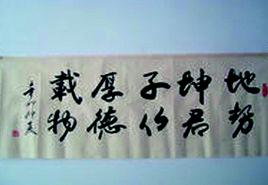 地勢
坤君
子以
厚德
載物
辛卯仲夏